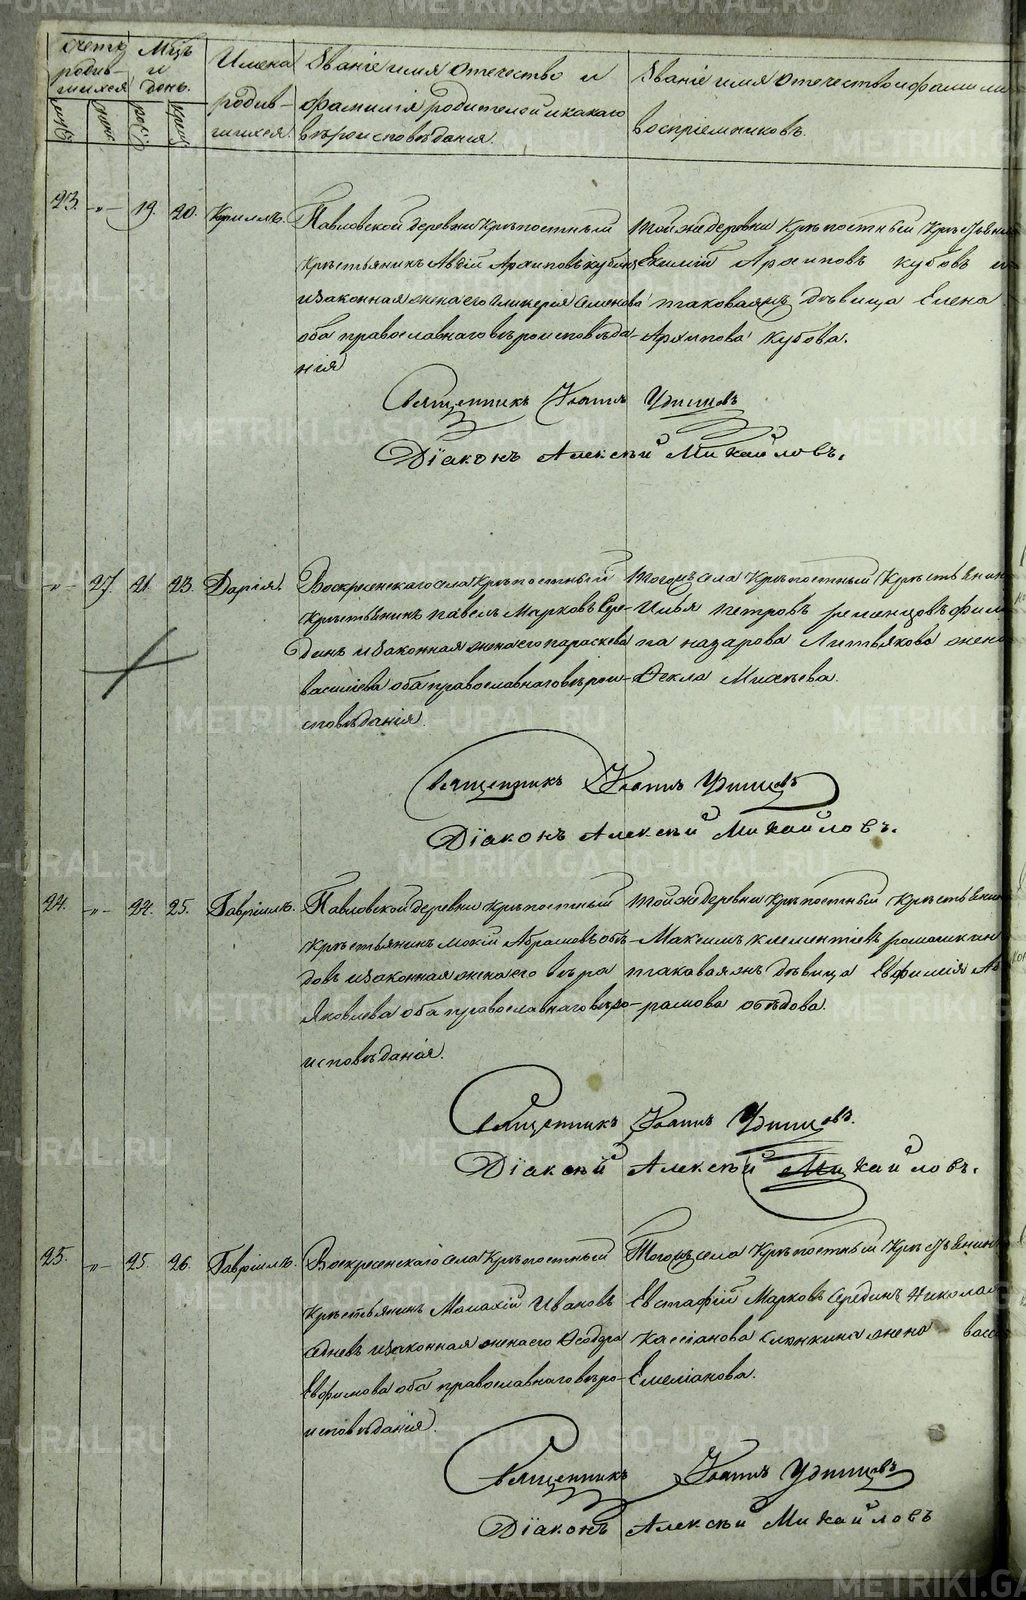 счетъ родив-шихся
Мцъ и день.
Имена родив-шихся.
Званіе имя отечество и фамилія родителей и какаго вѣроисповѣданія.
Званіе имя отечество и фамилія воспріемниковъ.
23. -„- 19. 20. Кириллъ.
Павловской деревни Крѣпостный
Крѣстьянинъ Авдій Архиповъ Кубовъ
и законная жена его Гликерія Семенова
оба православнаго вѣроисповѣда-
нія
Той же деревни Крѣпостный Крѣстьянинъ
Архиповъ Кубовъ и
таковаяжъ дѣвица Елена
Архипова Кубова.
Священникъ Іоаннъ Удинцовъ
Діаконъ Алексѣй Михайловъ.
-„- 27. 21. 23. Дарія.
Воскресенскаго села Крѣпостный
Крѣстьянинъ Павелъ Марковъ Сере-
динъ и законная жена его Параскева
Василіева оба православнаго вѣрои-
сповѣданія.
Тогожъ села Крѣпостный Крѣстьянинъ
Илья Петровъ Ременцовъ Фили
па Назарова Литвякова жена
Ѳекла Михѣева.
Священникъ Іоаннъ Удинцовъ
Діаконъ Алексѣй Михайловъ.
24. -„- 24. 25. Гавріилъ.
Павловской деревни Крѣпостный
Крѣстьянинъ Мокій Абрамовъ Обѣ-
довъ и законная жена его Вѣра
Яковлева оба православнаго вѣро-
исповѣданія.
Той же деревни Крѣпостный Крѣстьянинъ
Максимъ Клементіевъ Ромашкин
таковаяжъ дѣвица Евфимія Аб
рамова Обѣдова.
Священникъ Іоаннъ Удинцовъ.
Діаконъ Алексѣй Михайловъ.
25. -„- 25. 26. Гавріилъ.
Воскресенскаго села Крѣпостный
Крѣстьянинъ Малахій Ивановъ
Седневъ и законная жена его Ѳеодора
Евфимова оба православнаго вѣро-
исповѣданія.
Тогожъ села Крѣпостный Крѣстьянинъ
Евстафій Марковъ Серединъ Николая
Кассіанова Слонкина жена Васс
Емеліанова.
Священникъ Іоаннъ Удинцовъ
Діаконъ Алексѣй Михайловъ
METRIKI.GASO-URAL.RU